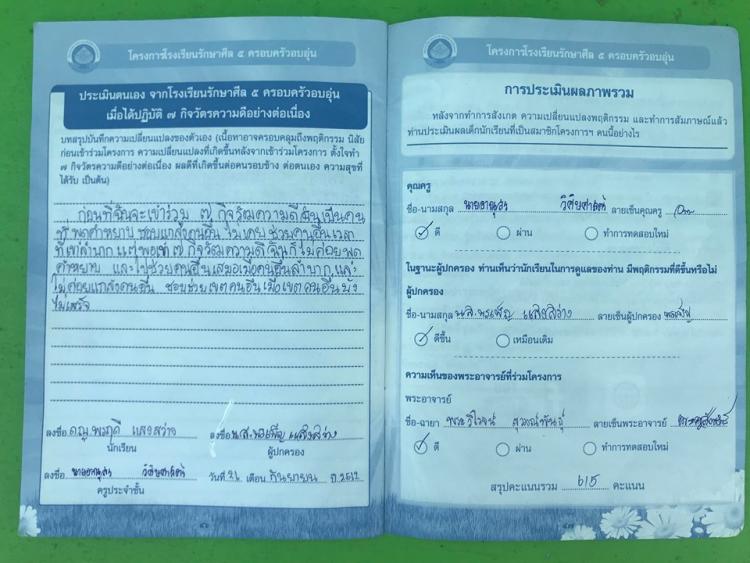 โครงการโรงเรียนรักษาศีล ๕ ครอบครัวอบอุ่น
ประเมินตนเอง จากโรงเรียนรักษาศีล ๕ ครอบครัวอบอุ่น
เมื่อได้ปฏิบัติ ๗ กิจวัตรความดีอย่างต่อเนื่อง
บทสรุปบันทึกความเปลี่ยนแปลงของตัวเอง (เนื้อหาอาจครอบคลุมถึงพฤติกรรม นิสัย
ก่อนเข้าร่วมโครงการ ความเปลี่ยนแปลงที่เกิดขึ้นหลังจากเข้าร่วมโครงการ ตั้งใจทำ
๗ กิจวัตรความดีอย่างต่อเนื่อง ผลดีที่เกิดขึ้นต่อคนรอบข้าง ต่อตนเอง ความสุขที่
ได้รับ เป็นต้น)
ก่อนที่ฉันจะเข้าร่วม ๗ กิจวัตความดีฉันเป็นคน
พูดคำหยาบ ชอบแกล้งคนอื่น ไม่เคยช่วยคนอื่นเวลา
ที่เขาลำบาก แต่พอทำ ๗ กิจวัตรความดี ฉันก็ไม่ค่อยพูด
คำหยาบ และไปช่วยคนอื่นเสมอเมื่อคนอื่นลำบาก และ
ไม่ค่อยแกล้งคนอื่น ชอบช่วยเขตคนอื่นเมื่อเขตคนอื่นยัง
ไม่เสร็จ
ลงชื่อ ด.ญ. แสงสว่าง ลงชื่อ น.ส. แสงสว่าง
นักเรียน ผู้ปกครอง
ลงชื่อ วันที่ เดือน กันยายน ปี 2562
ครูประจำชั้น
๔๖
โครงการโรงเรียนรักษาศีล ๕ ครอบครัวอบอุ่น
การประเมินผลภาพรวม
หลังจากทำการสังเกต ความเปลี่ยนแปลงพฤติกรรม และทำการสัมภาษณ์แล้ว
ท่านประเมินผลเด็กนักเรียนที่เป็นสมาชิกโครงการฯ คนนี้อย่างไร
คุณครู
ชื่อ-นามสกุล ลายเซ็นคุณครู
ดี ผ่าน ทำการทดสอบใหม่
ในฐานะผู้ปกครอง ท่านเห็นว่านักเรียนในการดูแลของท่าน มีพฤติกรรมที่ดีขึ้นหรือไม่
ผู้ปกครอง
ชื่อ-นามสกุล น.ส. แสงสว่าง ลายเซ็นผู้ปกครอง
ดีขึ้น เหมือนเดิม
ความเห็นของพระอาจารย์ที่ร่วมโครงการ
พระอาจารย์
ชื่อ-ฉายา ลายเซ็นพระอาจารย์
ดี ผ่าน ทำการทดสอบใหม่
สรุปคะแนนรวม 615 คะแนน
๔๗